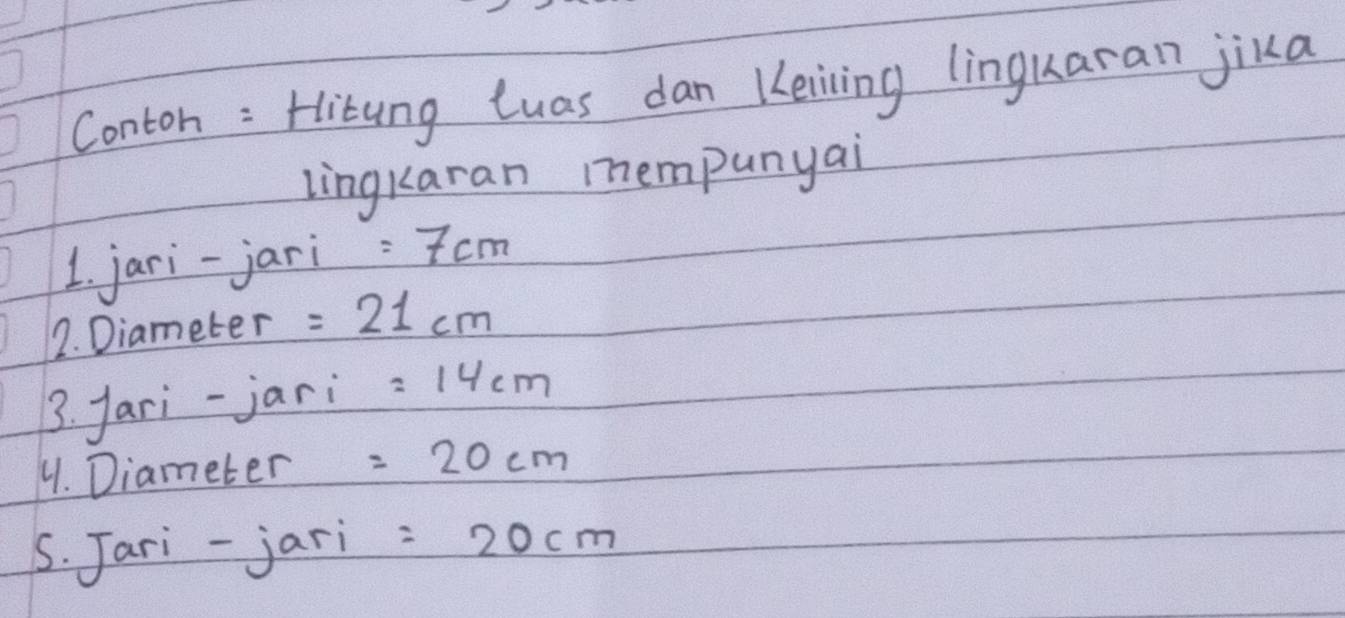 Contoh = Hitung luas dan Keliling lingkaran jika
lingkaran mempunyai
1. jari - jari = 7cm
2. Diameter = 21 cm
3. Jari - jari = 14cm
4. Diameter = 20 cm
5. Jari - jari = 20cm